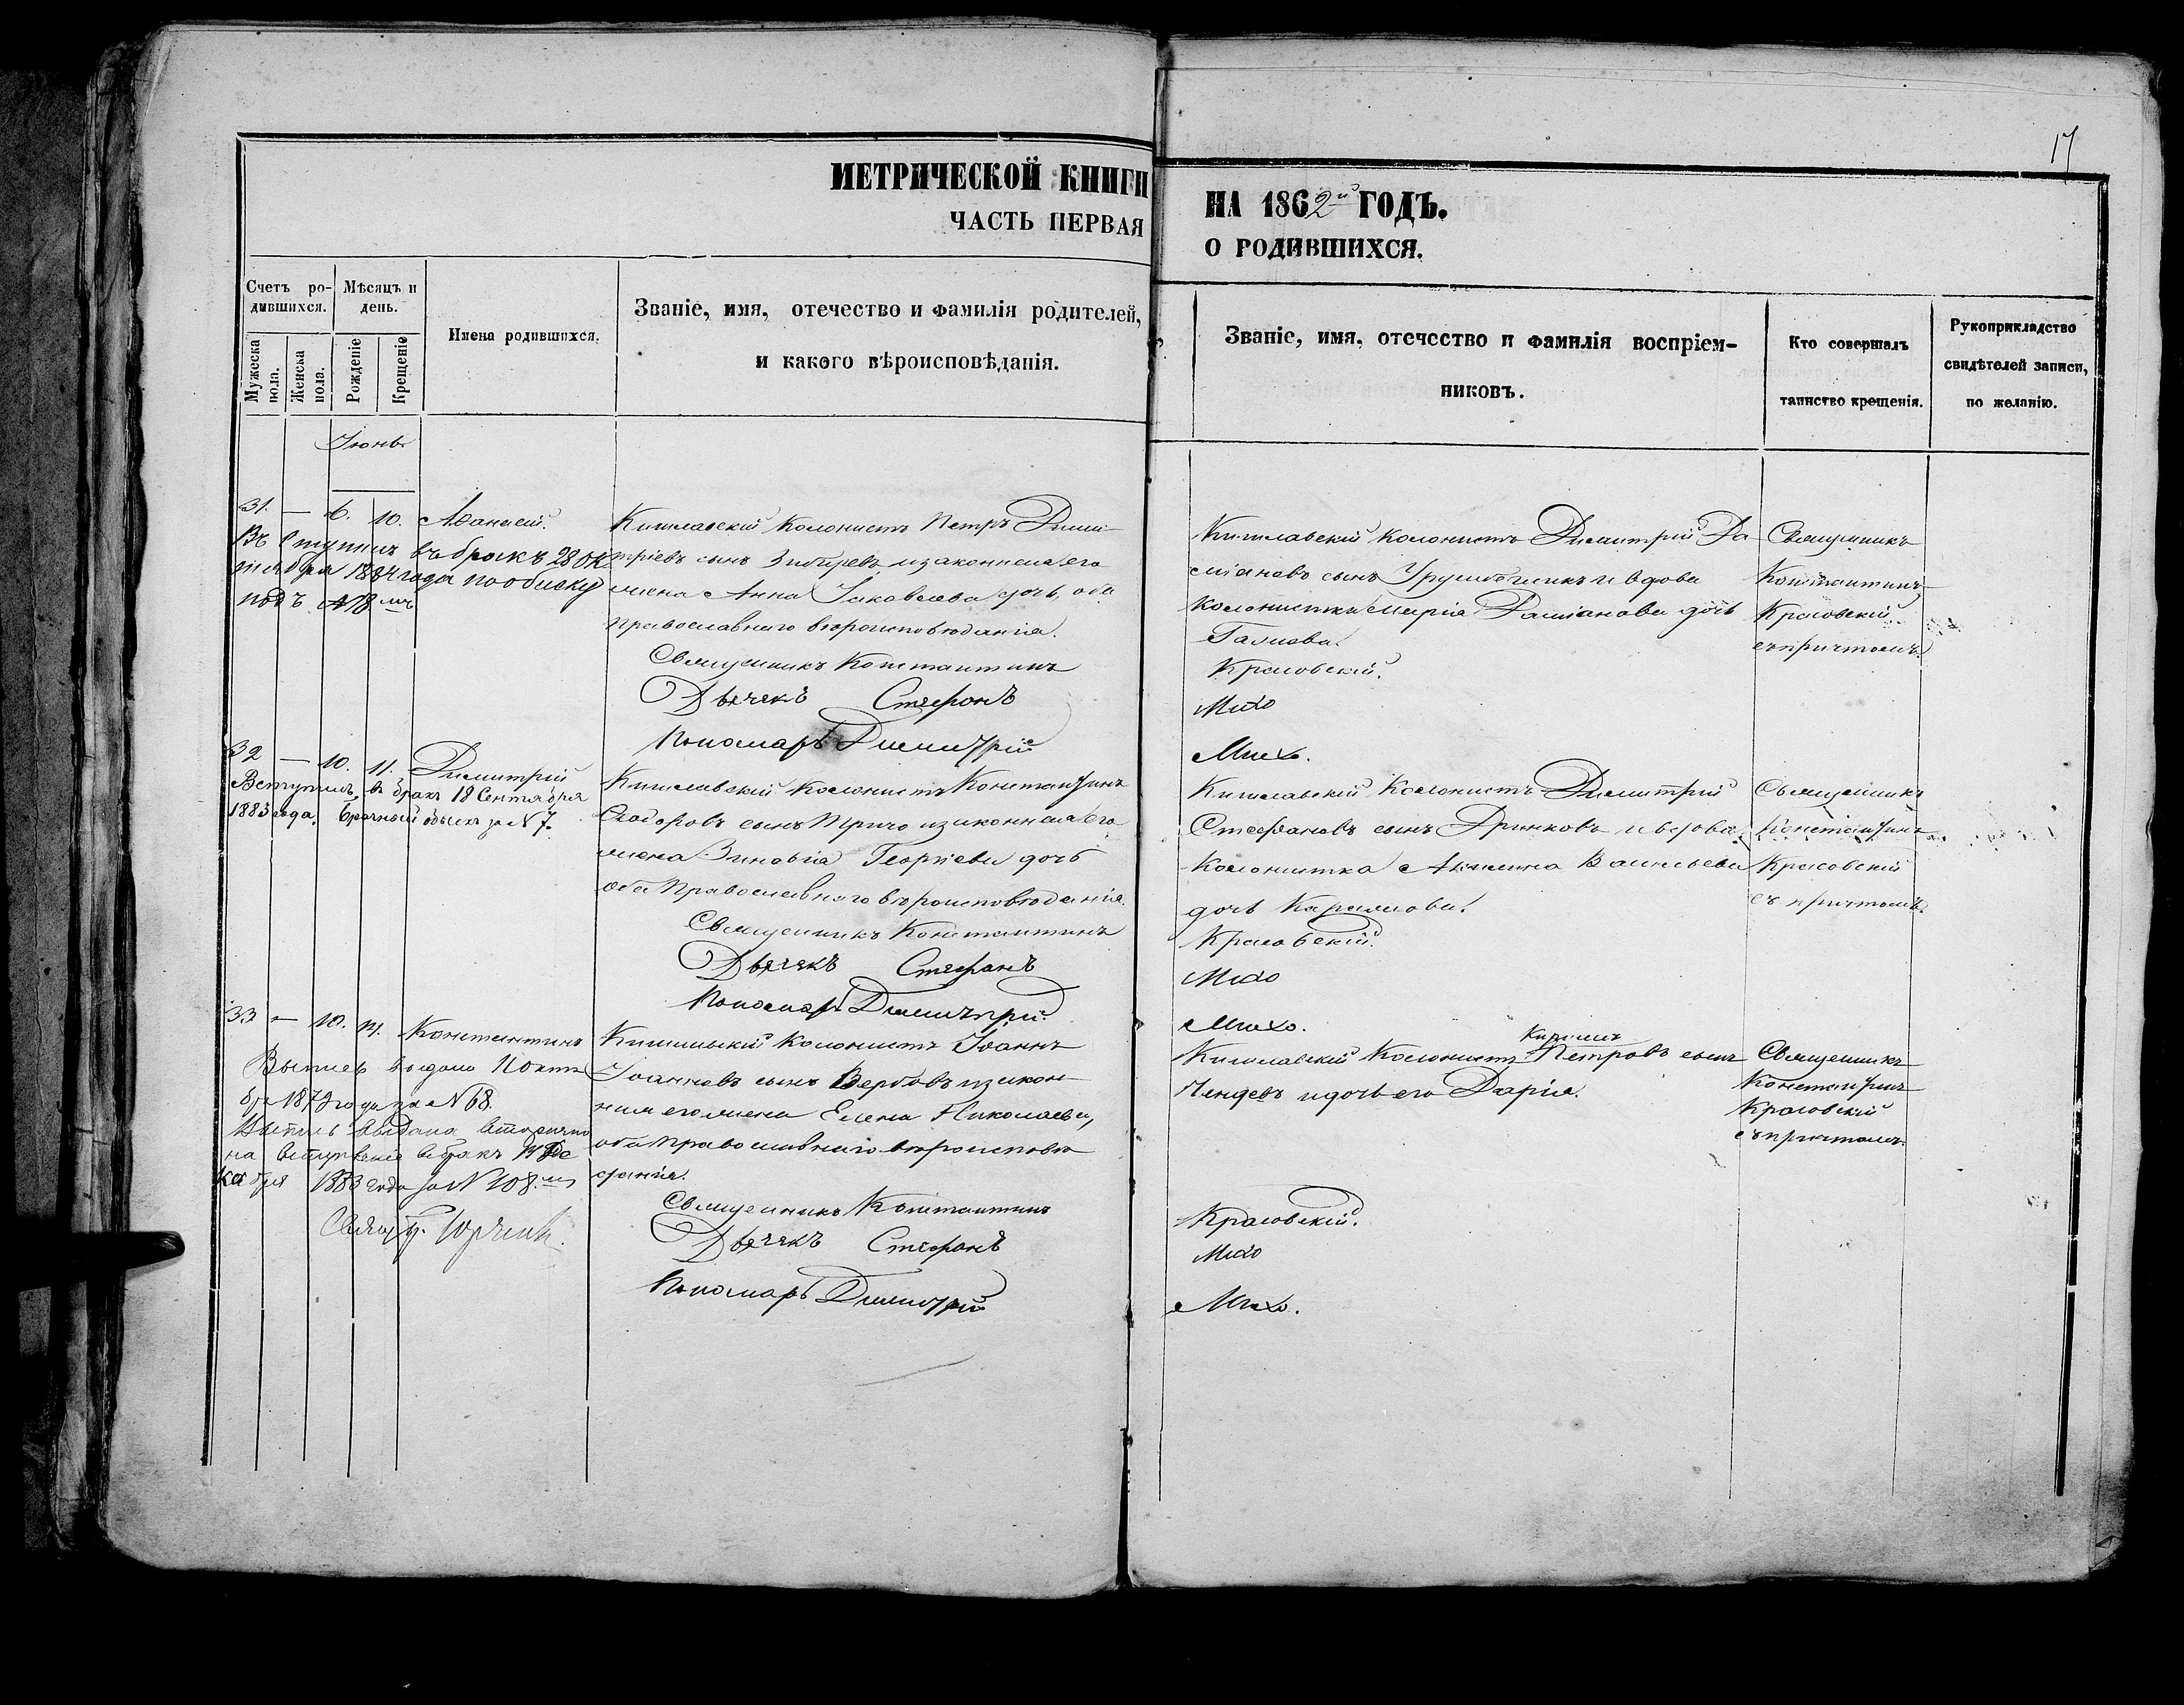 17
МЕТРИЧЕСКОЙ КНИГИ
ЧАСТЬ ПЕРВАЯ
НА 1862й ГОДЪ.
О РОДИВШИХСЯ.
Счетъ ро-
дившихся.
Мужеска пола.
Женска пола.
Мѣсяцъ и
день.
Рожденіе
Крещеніе
Имена родившихся.
Званіе, имя, отечество и фамилія родителей,
и какого вѣроисповѣданія.
Званіе, имя, отечество и фамилія воспріем-
никовъ.
Кто совершалъ
таинство крещенія.
Рукоприкладство
свидѣтелей записи,
по желанію.
Іюнь
31. — 6. 10. Аѳанасій.
Въ ступилъ въ бракъ 28 Ок
тября 1884 года по обыску
подъ №18мъ
Кишлавскій Колонистъ Петръ Дими
тріевъ сынъ и законная его
жена Анна Іаковлева дочь, оба
православнаго вѣроисповѣданія.
Священникъ Константинъ
Дьячекъ Стефанъ
Пономарь Димитрій
Кишлавскій Колонистъ Димитрій Да
міановъ сынъ и вдова
колонистка Марія Даміанова дочь
Красовскій.
Михо
Михо.
Священникъ
Константинъ
Красовскій
съ причтомъ.
32 — 10. 11. Димитрій
Вступилъ въ бракъ 18 Сентября
1883 года. Брачный обыскъ за №7.
Кишлавскій Колонистъ Константинъ
Ѳеодоровъ сынъ и законная его
жена Зиновія Георгіева дочь
оба Православнаго вѣроисповѣданія.
Священникъ Константинъ
Дьячекъ Стефанъ
Пономарь Димитрій.
Кишлавскій Колонистъ Димитрій
Стефановъ сынъ Дринковъ и вдова
колонистка Васильева
дочь
Красовскій.
Михо
Михо.
Священникъ
Константинъ
Красовскій
съ причтомъ.
33 — 10. 11. Константинъ
Выпись выдана Октя
бря 187 года за №68.
Выпись выдана вторично
на вступленіе въ бракъ Де
кабря 1883 года за №108.
Кишлавскій Колонистъ Іоаннъ
Іоанновъ сынъ Вербовъ и закон
ная его жена Елена Николаева,
оба православнаго вѣроисповѣ
данія.
Священникъ Константинъ
Дьячекъ Стефанъ
Пономарь Димитрій
Кишлавскій Колонистъ Петровъ сынъ
Пендевъ и дочь его Дарія.
Красовскій.
Михо
Михо.
Священникъ
Константинъ
Красовскій
съ причтомъ.